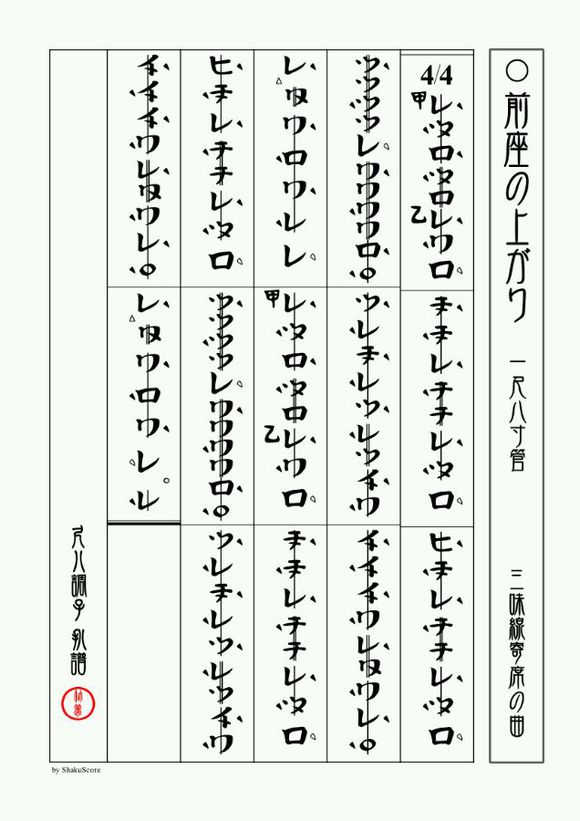 ○前座の上がり 一尺八寸管 三味線寄席の曲
4/4
甲
レツロツロレウロ
乙
チチレチチレツロ
ヒチレチチレツロ
ツツツツレウウウウロ。
ツレチレツレツイウ
イイイウレタウレ。
レタウロウレレ
甲
レツロツロレウロ
乙
チチレチチレツロ
ヒチレチチレツロ
ツツツツレウウウウロ。
ツレチレツレツイウ
イイイウレタウレ。
レタウロウレレ
尺八調子 譜
by ShakuScore